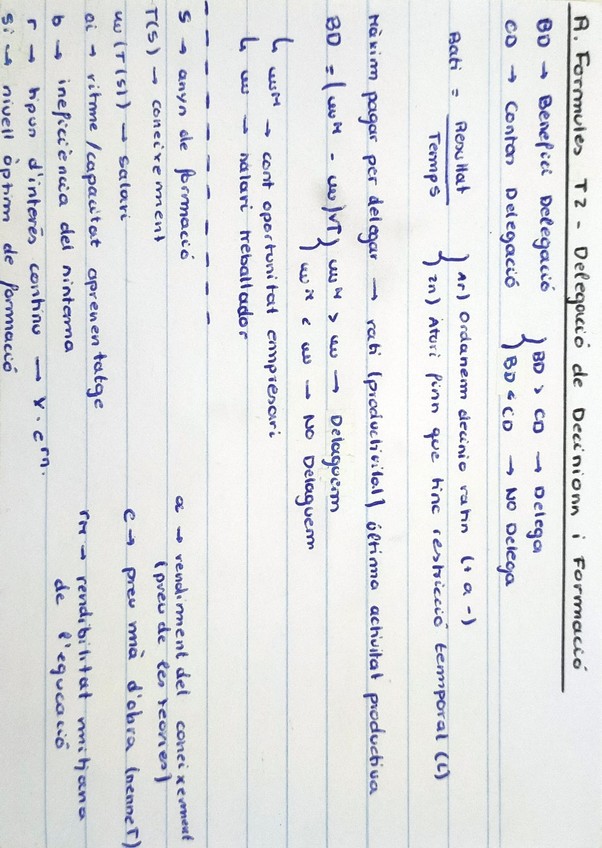 A. Formules T2 - Delegació de Decisions i Formació
BD → Benefici Delegació } BD > CD → Delega
CD → Costos Delegació } BD < CD → NO Delega
Rati = Resultat / Temps } 1r) Ordanem decisio ratis (+ a -)
} 2n) Aturi fins que tinc restricció temporal (L)
Màxim pagar per delegar → rati (productivitat) última activitat productiva
BD = (wᴹ - w)VT } wᴹ > w → Delaguem
} wᴹ < w → NO Delaguem
↳ wᴹ → cost oportunitat empresari
↳ w → salari treballador
S → anys de formació
T(S) → coneixement
w(T(S)) → salari
ai → ritme/capacitat aprenentatge
b → ineficiència del sistema
r → tipus d'interès continu → Y·eʳⁿ.
Si → nivell òptim de formació
a → rendiment del coneixement
(preu de les teories)
c → preu mà d'obra (sense T)
rm → rendibilitat mitjana
de l'equcació